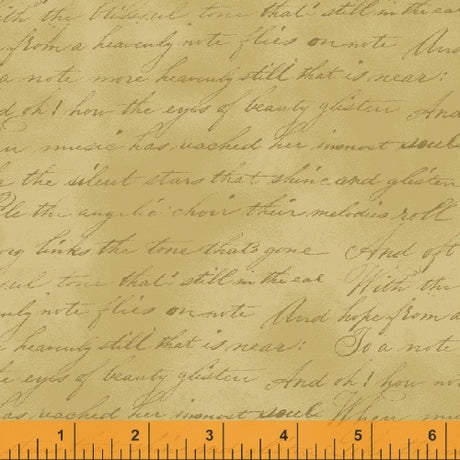 ith the blissful tone that's still in the ear
from a heavenly note flies on note And
a note more heavenly still that is near:
d oh! how the eyes of beauty glisten And
en music has reached her inmost soul
the silent stars that shine and glisten
le the angelic choir their melodies roll
ory links the tone that's gone And oft
sful tone that's still in the ear With the
nly note flies on note And hope from a
heavenly still that is near: To a note
e eyes of beauty glisten And oh! how
has reached her inmost soul When mu
1 2 3 4 5 6